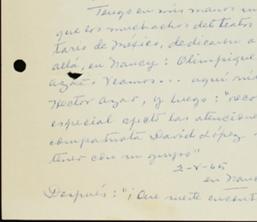 Tengo en mis manos un
que los muchachos del teatro
tario de México, dedicaron a
allá, en Nancy: Olimpique
Azar. Veamos... aquí
Hector Azar, y luego: "reco
especial afecto las atencione
compatriota David López
tener con mi grupo"
2-V-65
en Nanc
Después: "¡Que suerte encont